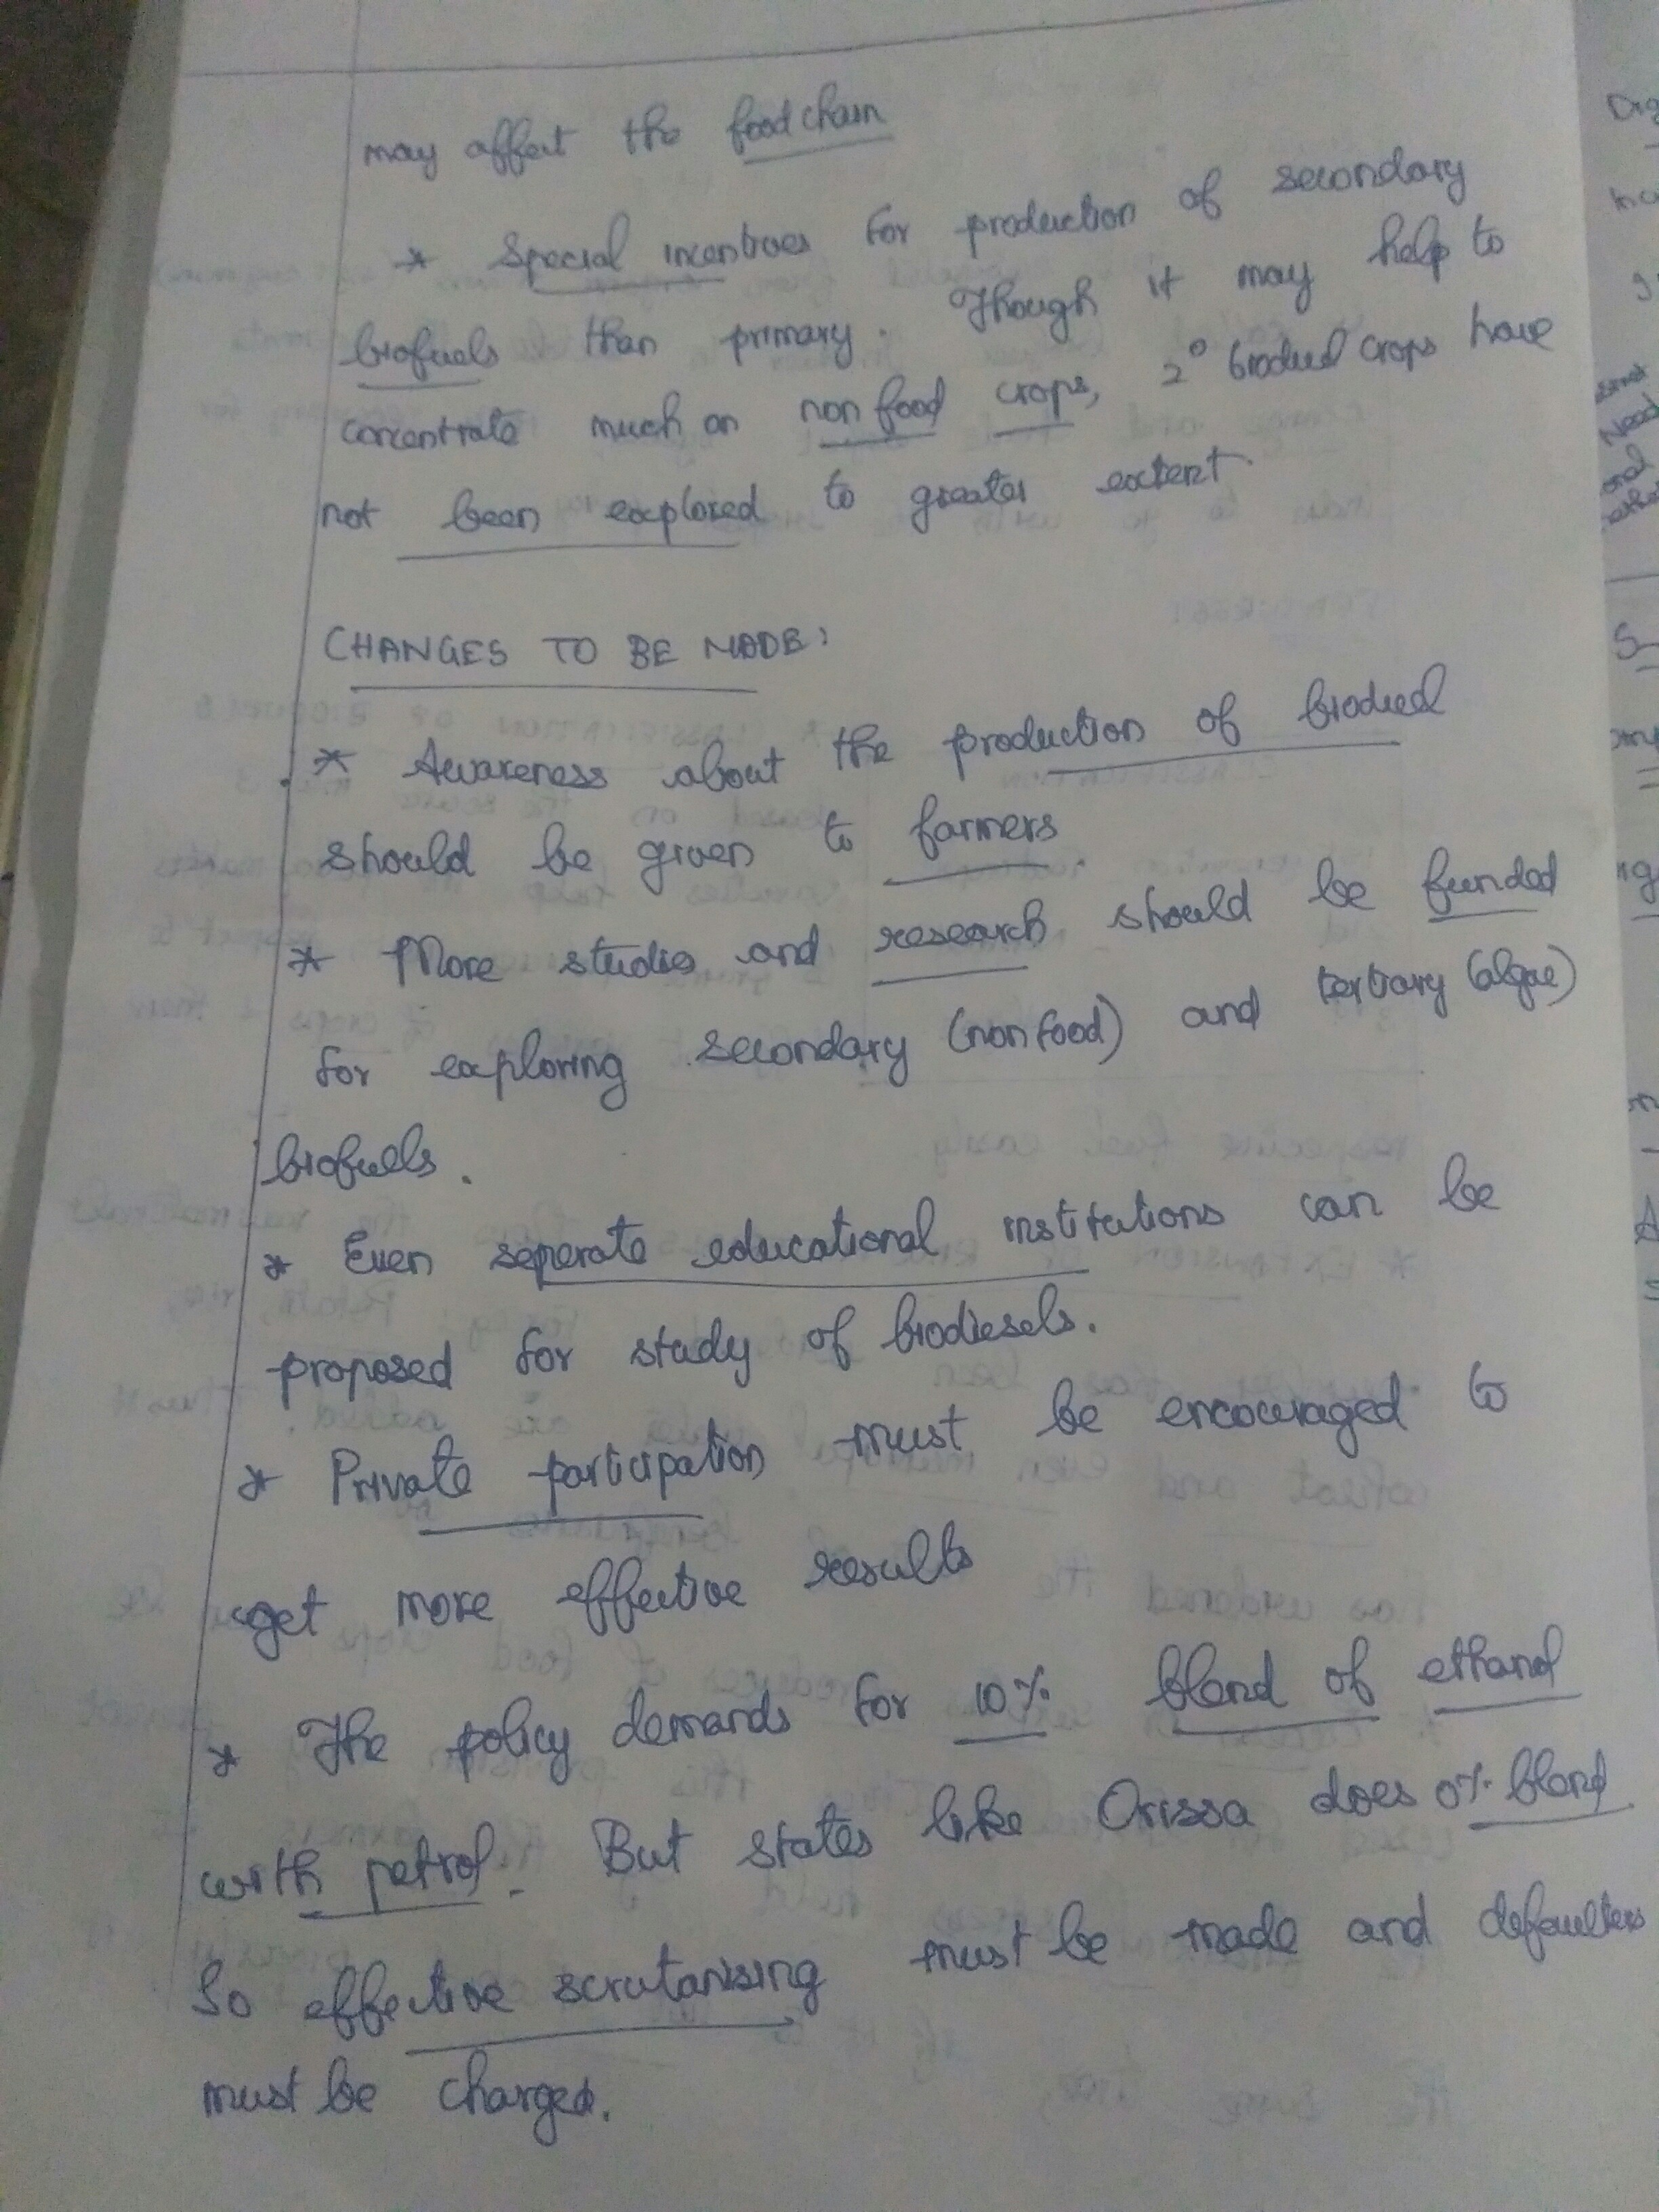 may affect the food chain
* Special incentives for production of secondary
biofuels than primary. Though it may help to
concentrate much on non food crops, 2° biofuel crops have
not been explored to greater extent
CHANGES TO BE MADE:
* Awareness about the production of biofuel
should be given to farmers
* More studies and research should be funded
for exploring secondary (non food) and tertiary (algae)
biofuels.
* Even seperate educational institutions can be
proposed for study of biodiesels.
* Private participation must be encouraged to
get more effective results
* The policy demands for 10% blend of ethanol
with petrol. But states like Orissa does 0% blend
So effective scrutanising must be made and defaulters
must be charged.